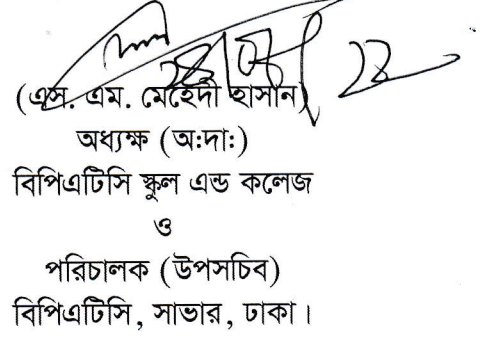 (এস. এম. মেহেদী হাসান)
অধ্যক্ষ (অ:দা:)
বিপিএটিসি স্কুল এন্ড কলেজ
ও
পরিচালক (উপসচিব)
বিপিএটিসি, সাভার, ঢাকা।